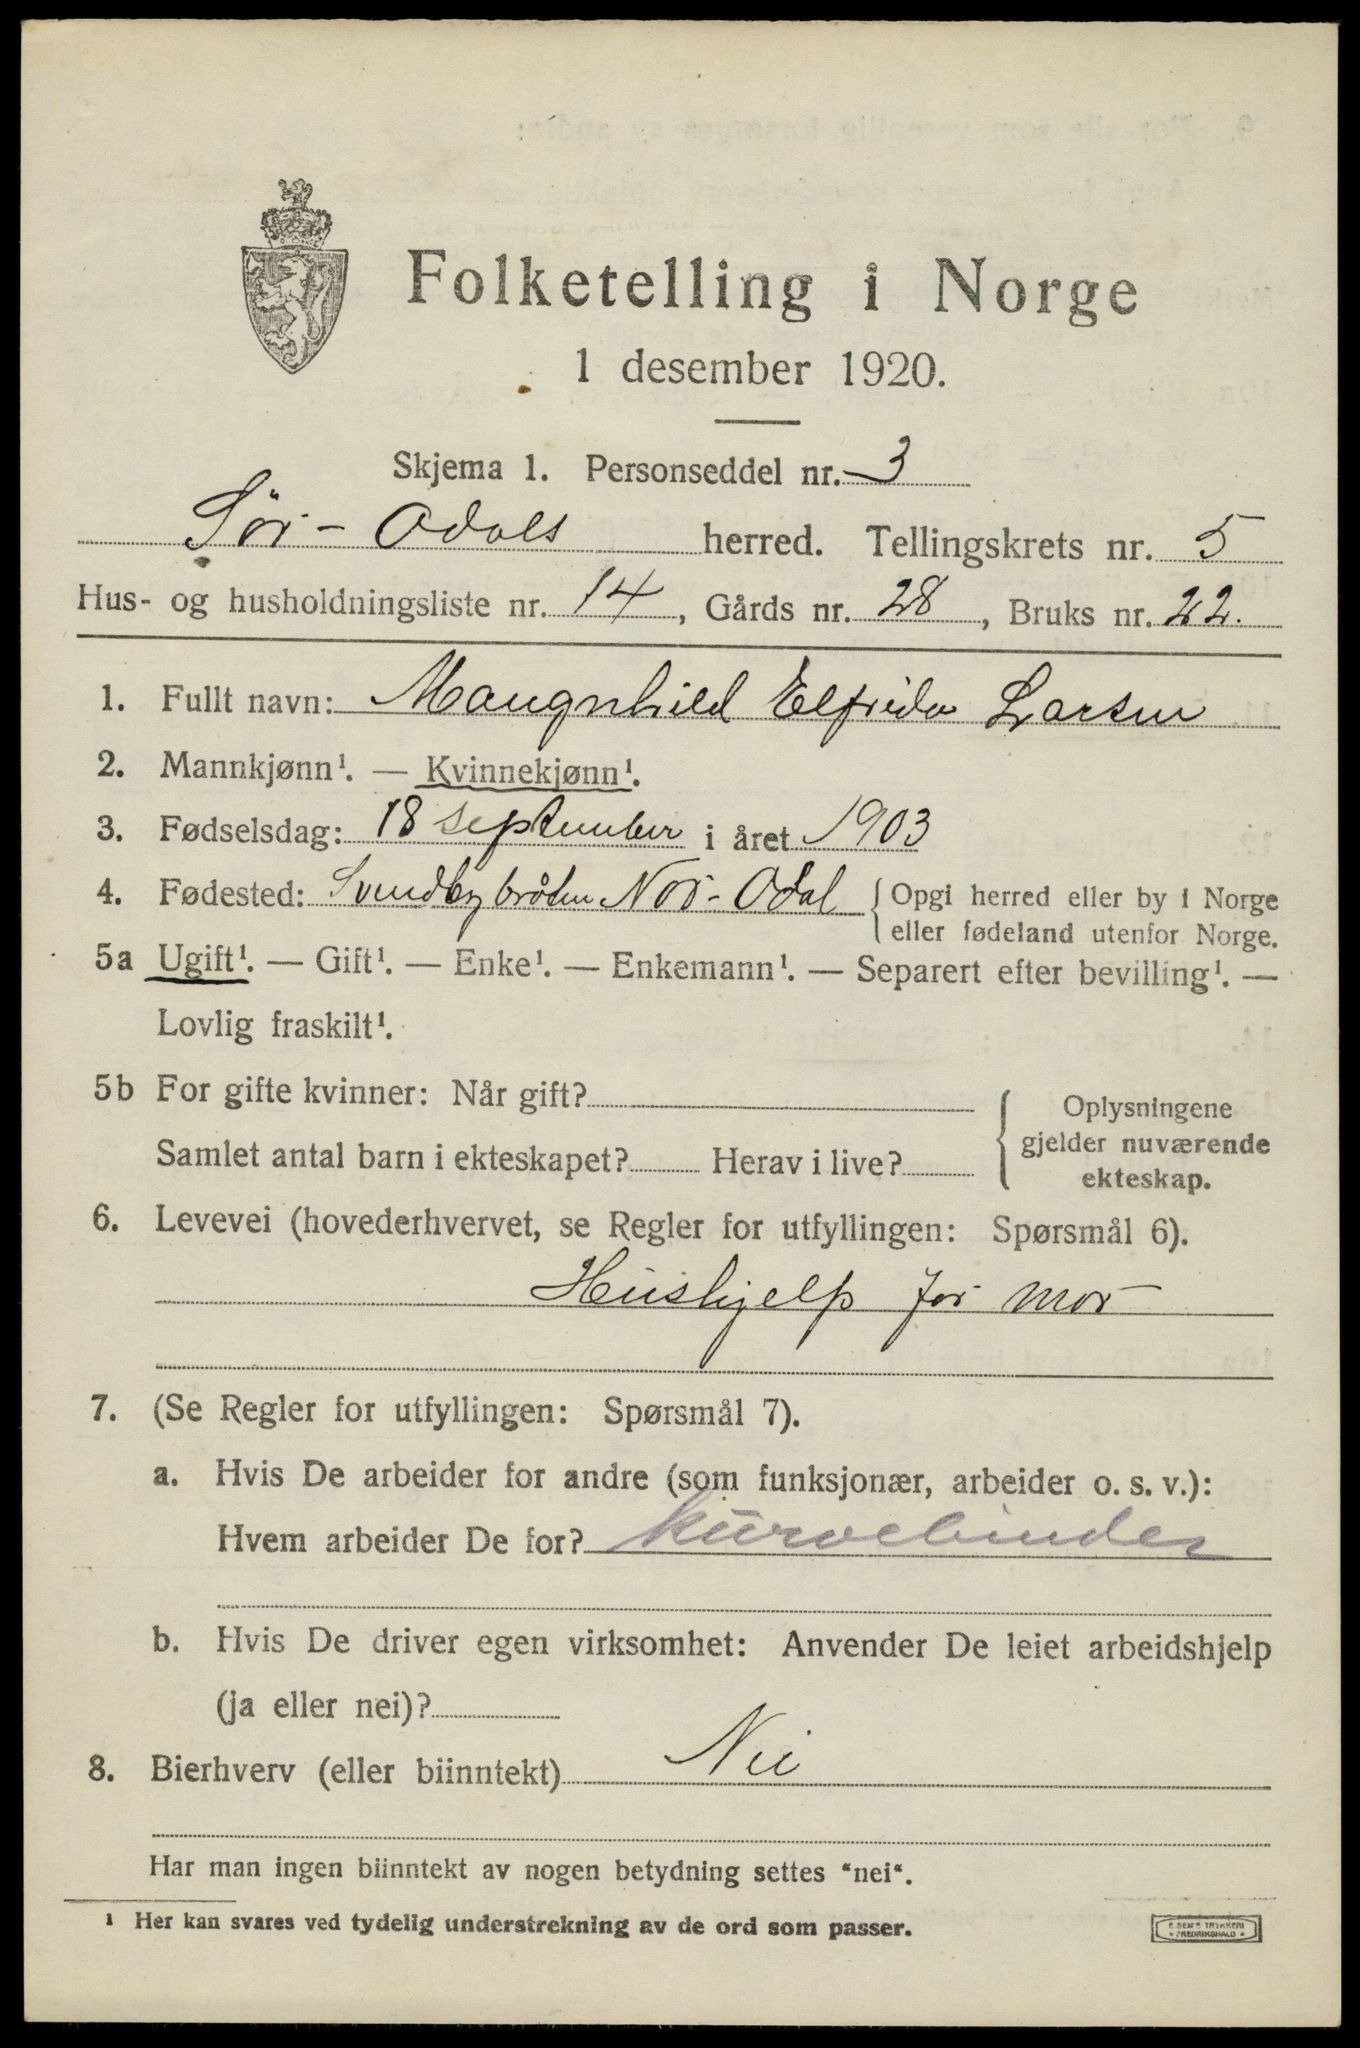 Folketelling i Norge
1 desember 1920.
Skjema 1. Personseddel nr. 3
Sör-Odals herred. Tellingskrets nr. 5
Hus- og husholdningsliste nr. 14, Gårds nr. 28, Bruks nr. 22.
1. Fullt navn: Maugnhild Elfrida Larsen
2. Mannkjønn¹. — Kvinnekjønn¹.
3. Fødselsdag: 18 september i året 1903
4. Fødested: Svendbybråten Nor-Odal { Opgi herred eller by i Norge
eller fødeland utenfor Norge.
5a Ugift¹. — Gift¹. — Enke¹. — Enkemann¹. — Separert efter bevilling¹. —
Lovlig fraskilt¹.
5b For gifte kvinner: Når gift?
Samlet antal barn i ekteskapet? Herav i live?
{ Oplysningene
gjelder nuværende
ekteskap.
6. Levevei (hovederhvervet, se Regler for utfyllingen: Spørsmål 6).
Hüshjelp for mor
7. (Se Regler for utfyllingen: Spørsmål 7).
a. Hvis De arbeider for andre (som funksjonær, arbeider o. s. v.):
Hvem arbeider De for? kürvebinder
b. Hvis De driver egen virksomhet: Anvender De leiet arbeidshjelp
(ja eller nei)?
8. Bierhverv (eller biinntekt) Nei
Har man ingen biinntekt av nogen betydning settes "nei".
¹ Her kan svares ved tydelig understrekning av de ord som passer.
E. SEM'S TRYKKERI
FREDRIKSHALD